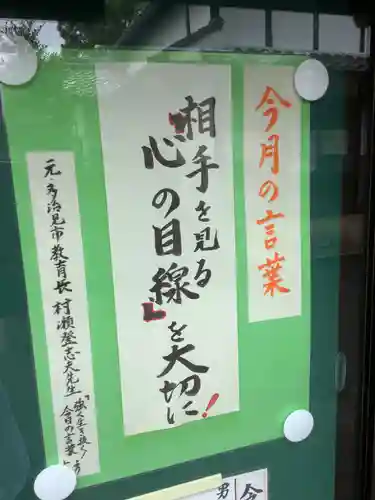 今月の言葉
相手を見る
『心の目線』を大切に!
元・多治見市教育長 村瀬登志夫先生
『強く生き抜く
今日の言葉』より
男
今